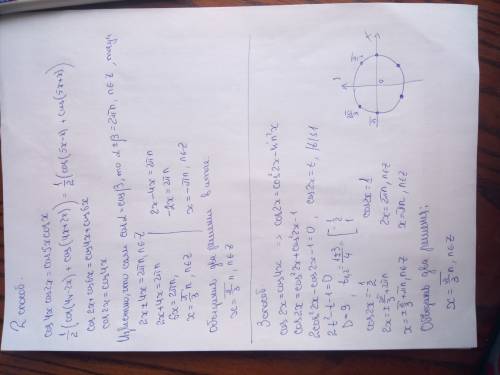 2 способ.
cos4x cos2x = cos5x cosx
1/2(cos(4x-2x) + cos(4x+2x)) = 1/2(cos(5x-x) + cos(5x+x))
cos2x + cos6x = cos4x + cos6x
cos2x = cos4x
Известно, что если cosα = cosβ, то α±β = 2πn, n∈Z, тогда
2x+4x = 2πn, n∈Z
2x+4x = 2πn
6x = 2πn,
x = π/3 n, n∈Z
2x-4x = 2πn
-2x = 2πn
x = -πn, n∈Z
Объединив два решения в итоге
x = π/3 n, n∈Z
3 способ
cos2x = cos4x => cos2x = cos²2x - sin²2x
cos2x = cos²2x + cos²2x - 1
2cos²2x - cos2x - 1 = 0, cos2x = t, |t|≤1
2t² - t - 1 = 0
D = 9, t₁,₂ = (1±3)/4 = [-1/2; 1
cos2x = -1/2
2x = ±2π/3 + 2πn, n∈Z
x = ±π/3 + πn, n∈Z
cos2x = 1
2x = 2πn, n∈Z
x = πn, n∈Z
Объединив два решения:
x = π/3 n, n∈Z